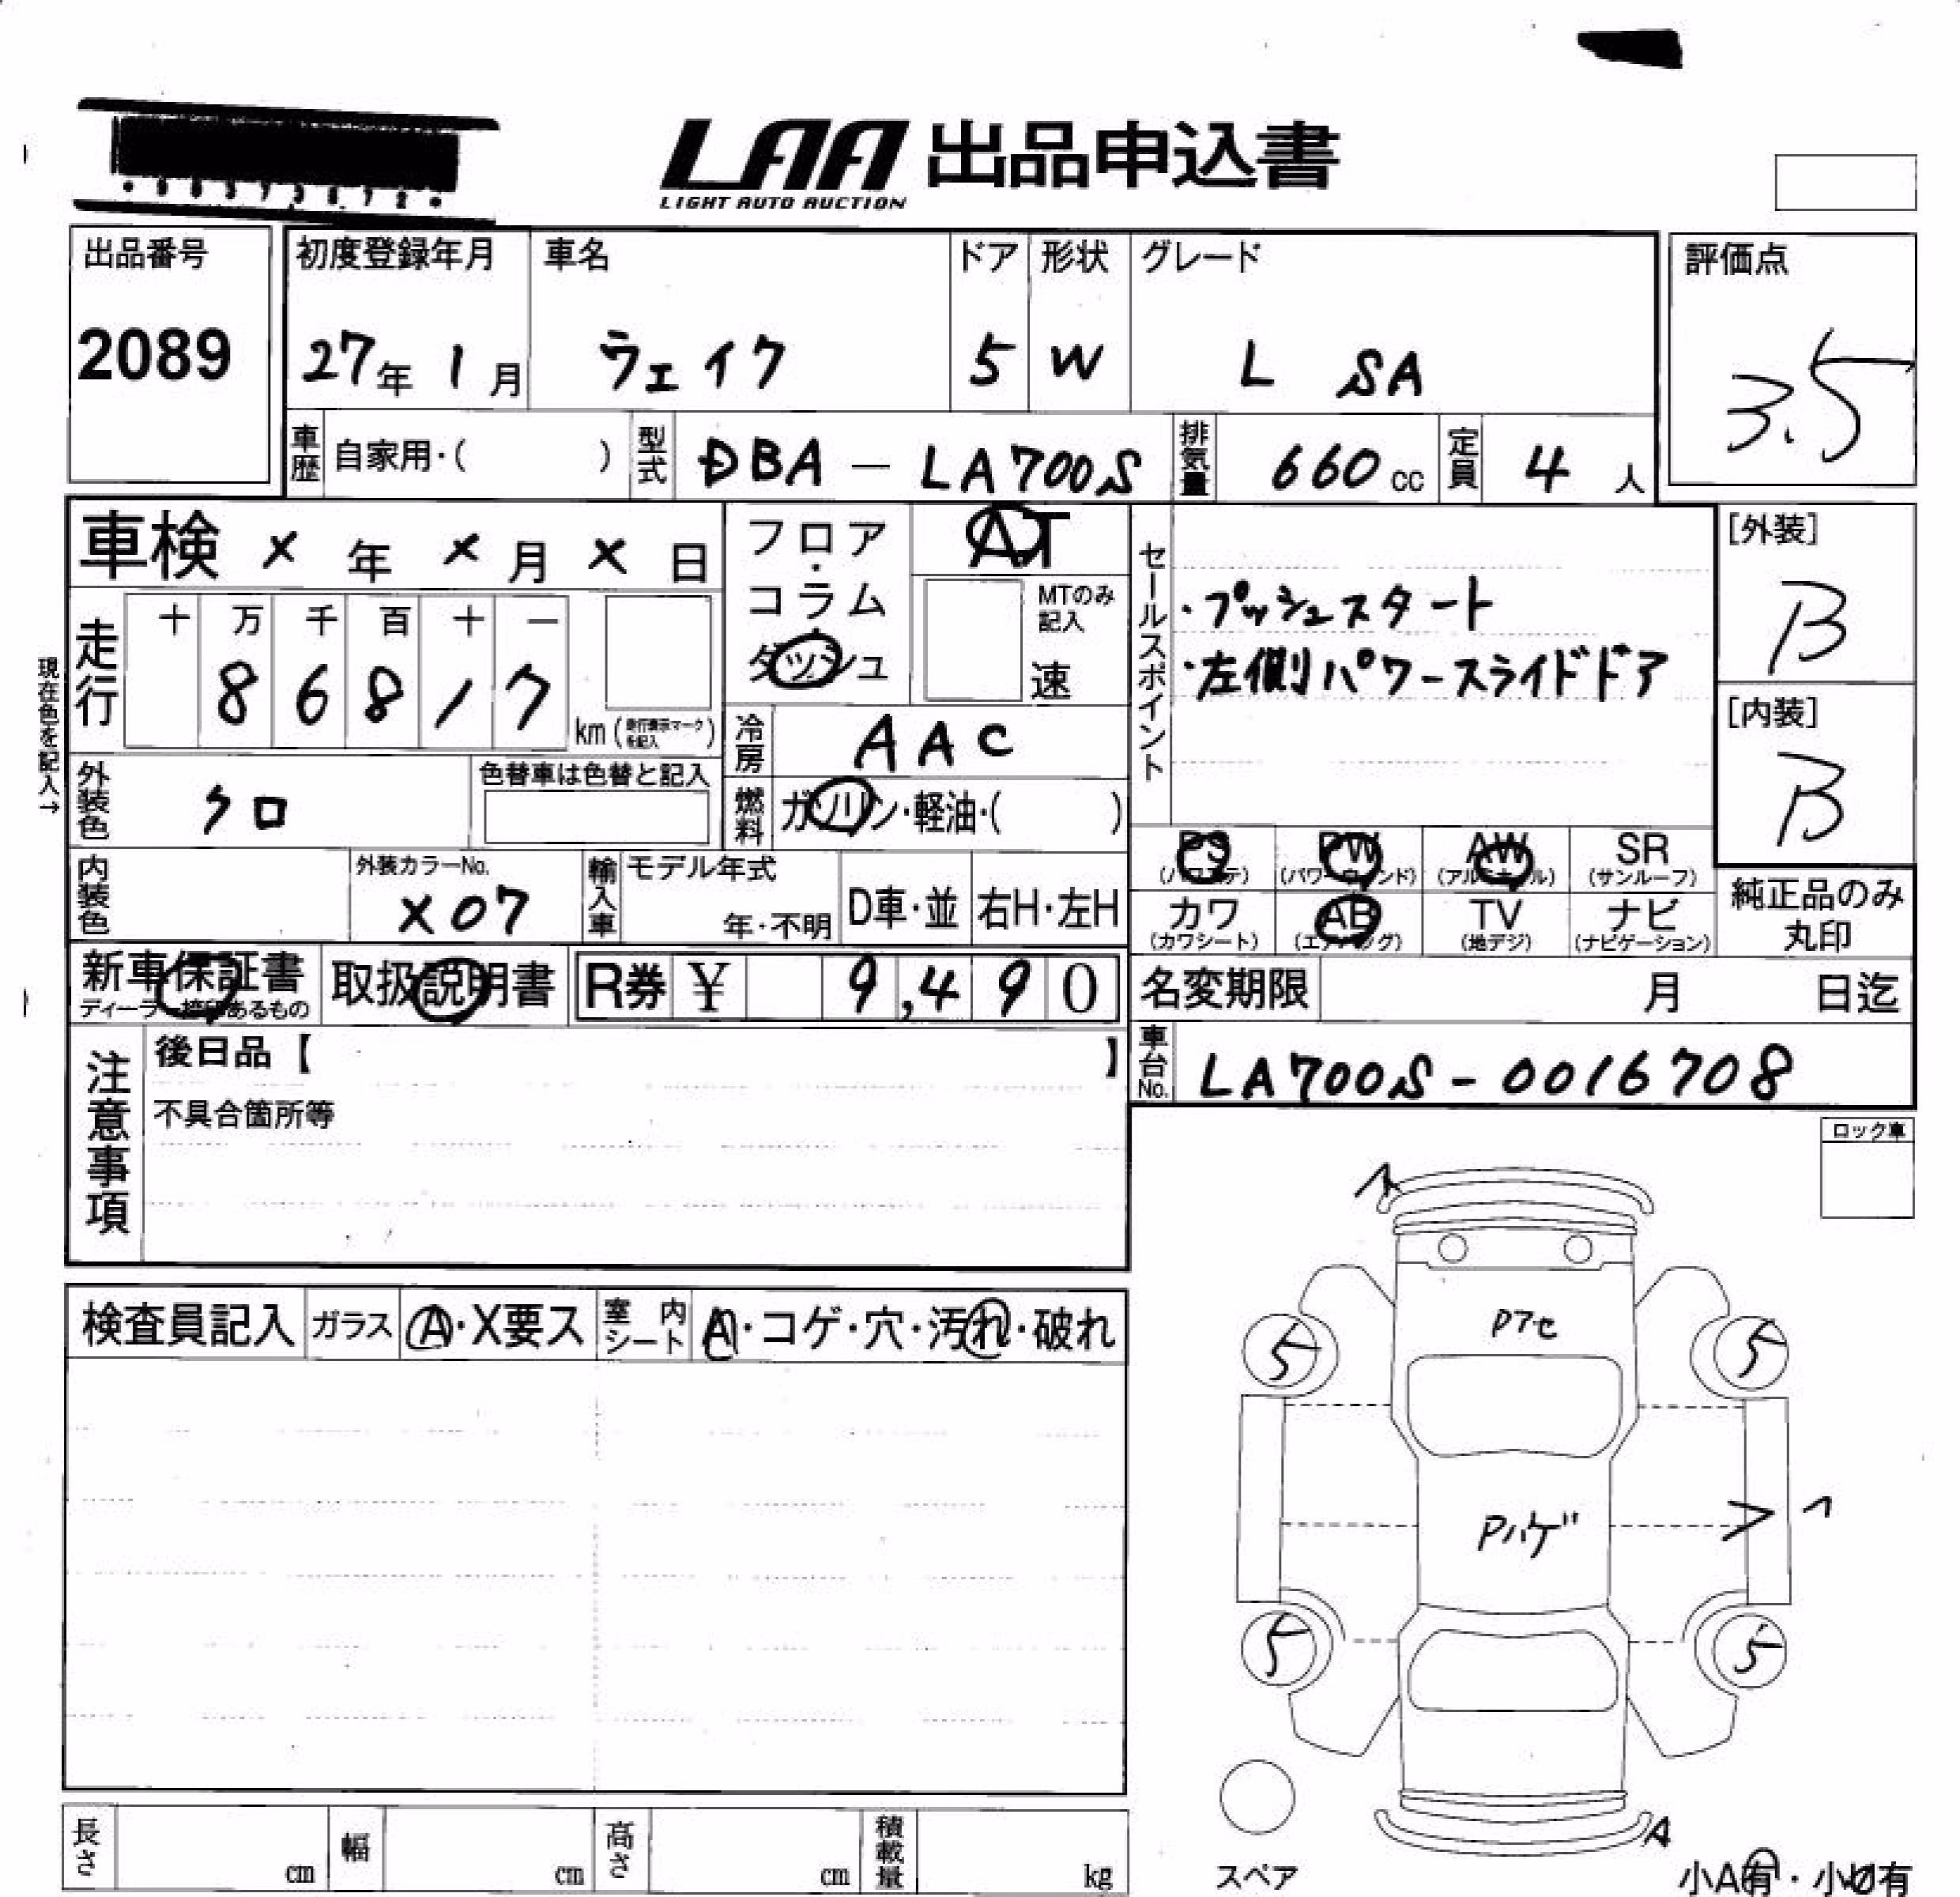 LAA 出品申込書
LIGHT AUTO AUCTION
出品番号
2089
初度登録年月 車名 ドア 形状 グレード
27年 1月 ウェイク 5 W L SA
評価点
3.5
車歴 自家用・( ) 型式 DBA - LA700S 排気量 660 cc 定員 4 人
車検 × 年 × 月 × 日
フロア・コラム・ダッシュ
AT
MTのみ記入
速
セールスポイント
・プッシュスタート
・左側パワースライドドア
[外装]
B
[内装]
B
現在色を記入→
走行 十 万 千 百 十 一
8 6 8 1 7 km (走行表示マークを記入)
冷房 AAC
外装色 クロ 色替車は色替と記入
燃料 ガソリン・軽油・( )
PS PW AW SR
(パワステ) (パワーウィンド) (アルミホイル) (サンルーフ)
カワ AB TV ナビ
(カワシート) (エアバッグ) (地デジ) (ナビゲーション)
純正品のみ
丸印
内装色 外装カラーNo. X07 輸入車 モデル年式 年・不明 D車・並 右H・左H
新車保証書 取扱説明書 R券 ¥ 9,490
名変期限 月 日迄
車台No. LA700S-0016708
注意事項
後日品【 】
不具合箇所等
ロック車
検査員記入 ガラス A・X要ス 室内シート A・コゲ・穴・汚れ・破れ
Pアセ
5 5
Pハゲ
5 5
A
長さ cm 幅 cm 高さ cm 積載量 kg
スペア
小A有・小U有